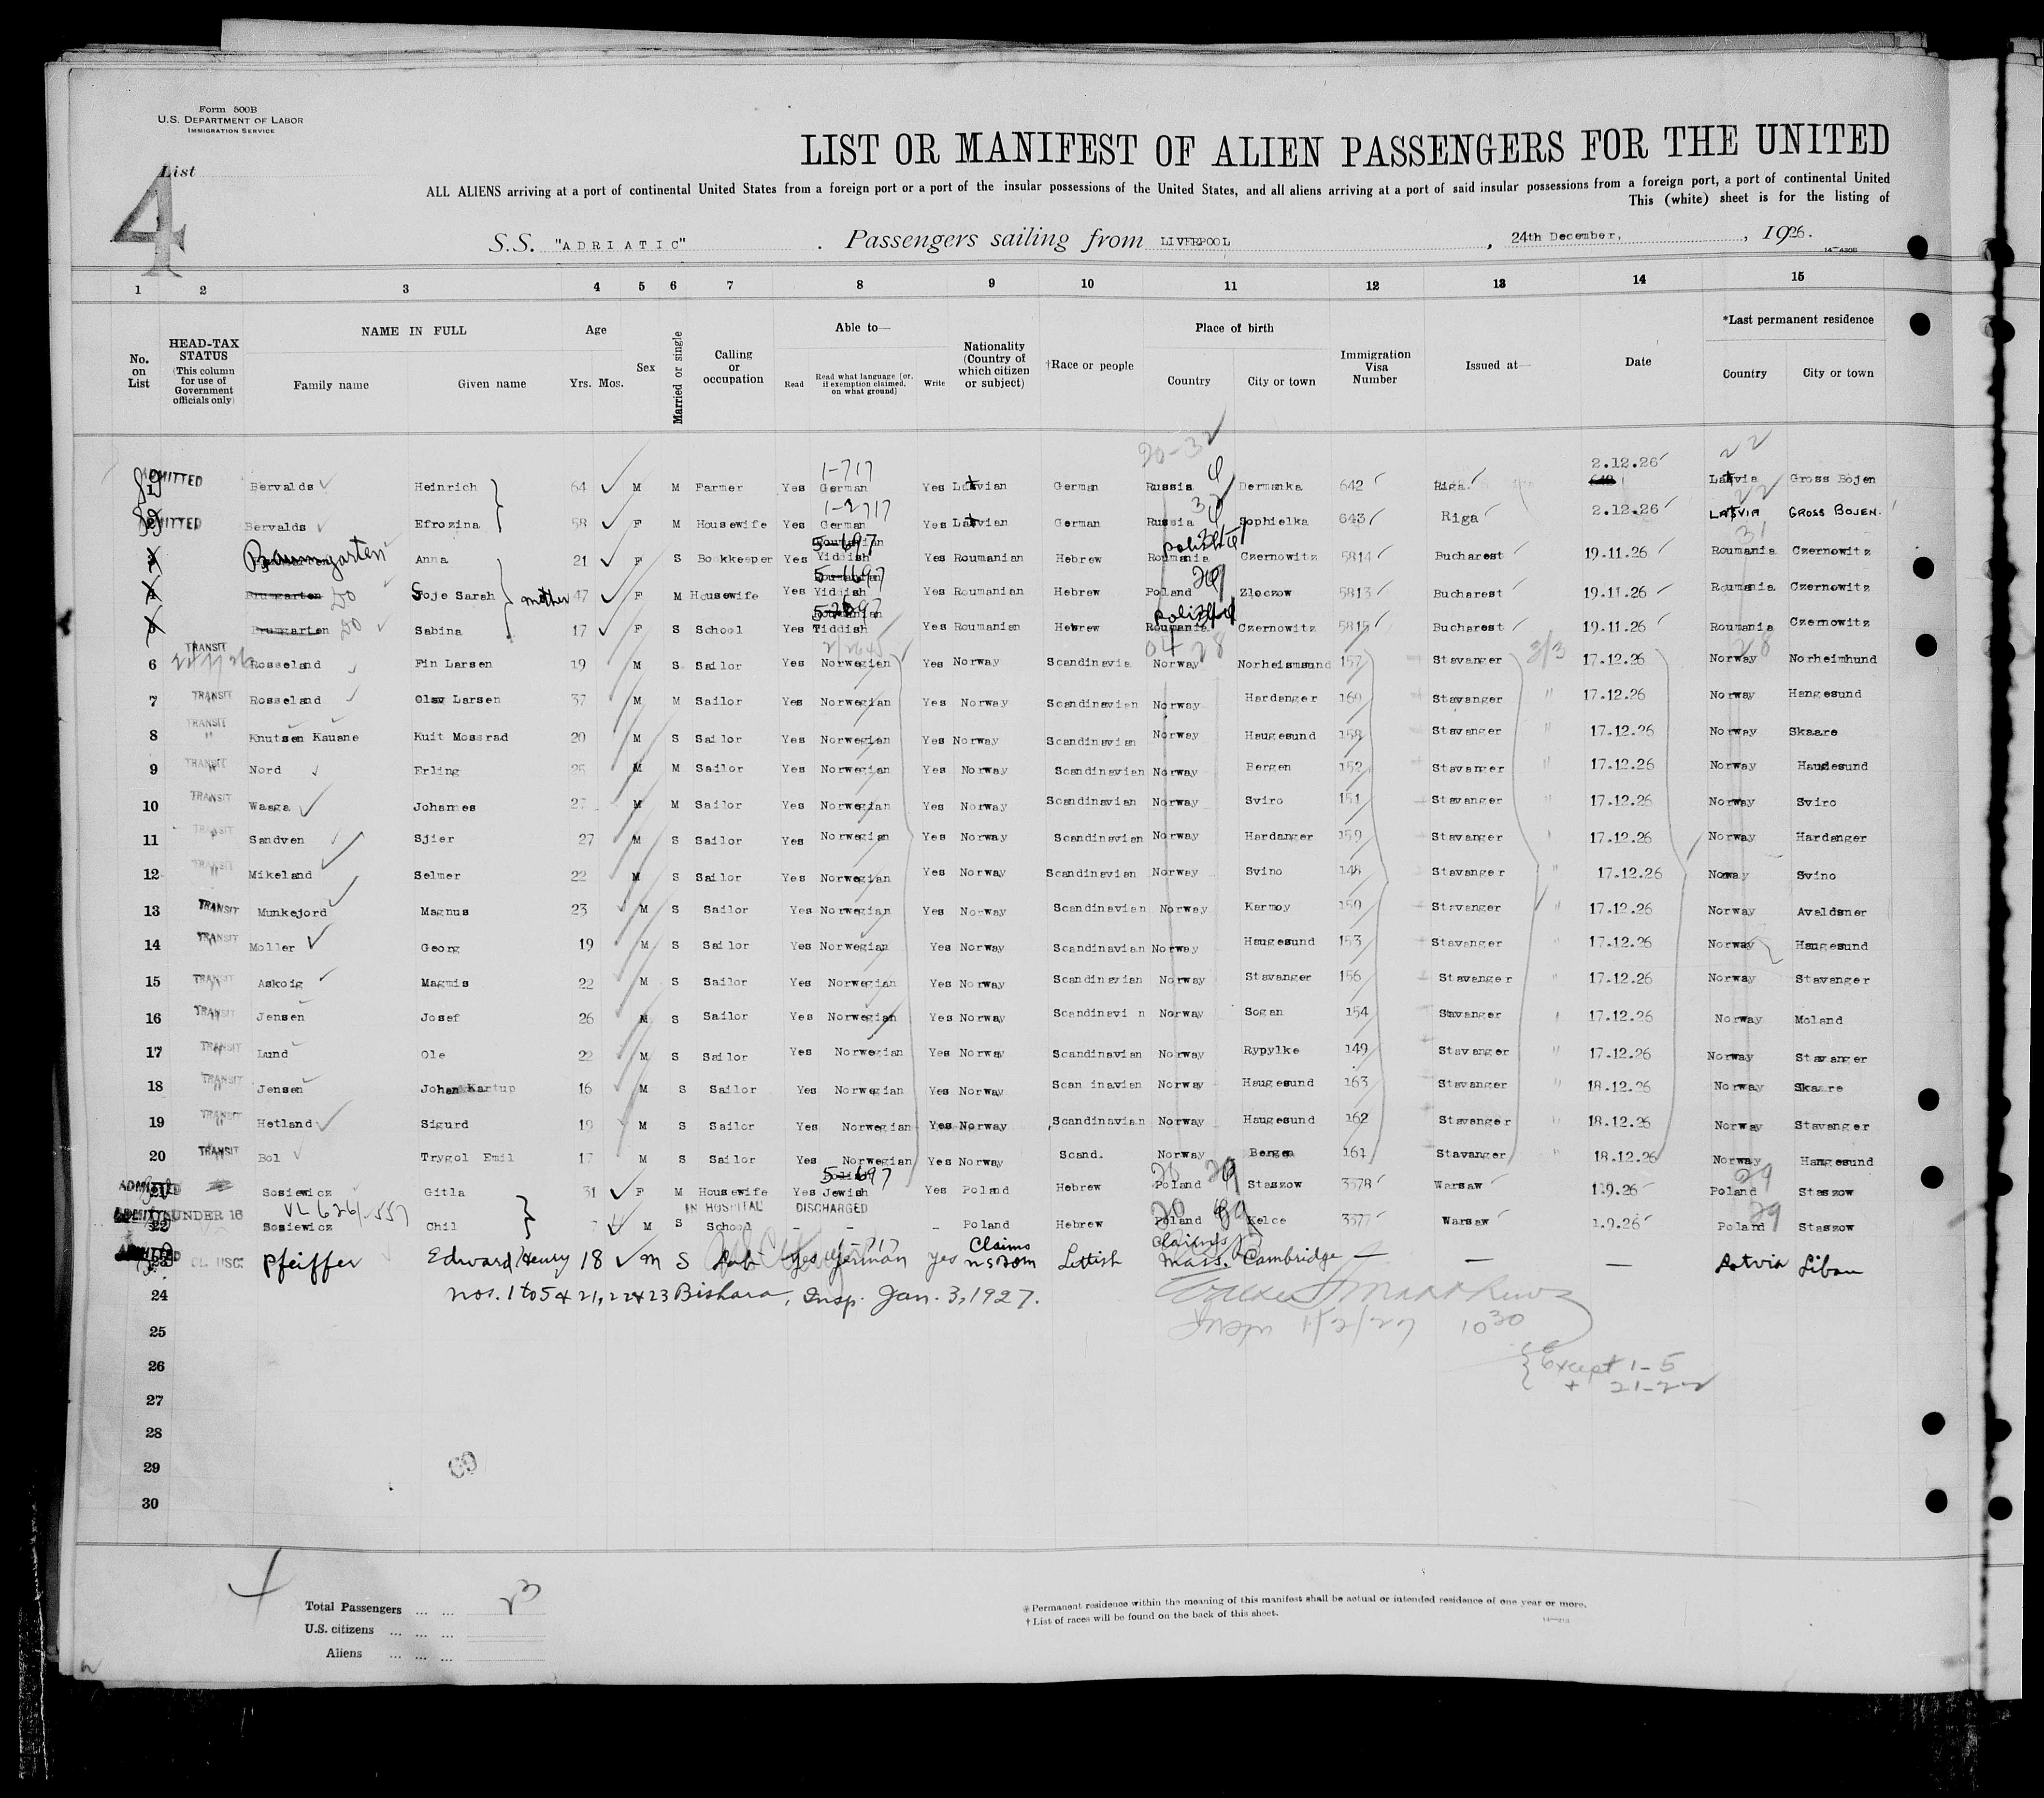 Form 500B
U.S. DEPARTMENT OF LABOR
IMMIGRATION SERVICE
List
4
LIST OR MANIFEST OF ALIEN PASSENGERS FOR THE UNITED
ALL ALIENS arriving at a port of continental United States from a foreign port or a port of the insular possessions of the United States, and all aliens arriving at a port of said insular possessions from a foreign port, a port of continental United
This (white) sheet is for the listing of
S.S. "ADRIATIC" . Passengers sailing from LIVERPOOL , 24th December, , 1926.
1 2 3 4 5 6 7 8 9 10 11 12 13 14 15
No. on List
HEAD-TAX STATUS (This column for use of Government officials only)
NAME IN FULL
Family name Given name
Age
Yrs. Mos.
Sex
Married or single
Calling or occupation
Able to—
Read Read what language [or, if exemption claimed, on what ground] Write
Nationality (Country of which citizen or subject)
†Race or people
Place of birth
Country City or town
Immigration Visa Number
Issued at—
Date
*Last permanent residence
Country City or town
20-32 22
1-717 2.12.26
ADMITTED Bervalds Heinrich 64 M M Farmer Yes German Yes Latvian German Russia Dermanka 642 Riga Latvia Gross Bojen
1-2717
Bervalds Efrozina 58 F M Housewife Yes German Yes Latvian German Russia Sophielka 643 Riga 2.12.26 LATVIA GROSS BOJEN.
Baumgarten Anna 21 F S Bookkeeper Yes Yiddish Yes Roumanian Hebrew Roumania Czernowitz 5814 Bucharest 19.11.26 Roumania Czernowitz
Brumgarten Do Soje Sarah mother 47 F M Housewife Yes Yiddish Yes Roumanian Hebrew Poland Zloczow 5813 Bucharest 19.11.26 Roumania Czernowitz
Brumgarten Do Sabina 17 F S School Yes Yiddish Yes Roumanian Hebrew Roumania Czernowitz 5815 Bucharest 19.11.26 Roumania Czernowitz
6 TRANSIT Rosseland Fin Larsen 19 M S Sailor Yes Norwegian Yes Norway Scandinavia Norway Norheismsund 157 Stavanger 17.12.26 Norway Norheimhund
7 TRANSIT Rosseland Olav Larsen 37 M M Sailor Yes Norwegian Yes Norway Scandinavien Norway Hardanger 160 Stavanger 17.12.26 Norway Hangesund
8 TRANSIT Knutsen Kauane Kuit Mossrad 20 M S Sailor Yes Norwegian Yes Norway Scandinavian Norway Haugesund 158 Stavanger 17.12.26 Norway Skaare
9 TRANSIT Nord Erling 25 M M Sailor Yes Norwegian Yes Norway Scandinavian Norway Bergen 152 Stavanger 17.12.26 Norway Haudesund
10 TRANSIT Waaga Johannes 27 M M Sailor Yes Norwegian Yes Norway Scandinavian Norway Sviro 151 Stavanger 17.12.26 Norway Sviro
11 TRANSIT Sandven Sjier 27 M S Sailor Yes Norwegian Yes Norway Scandinavian Norway Hardanger 159 Stavanger 17.12.26 Norway Hardanger
12 TRANSIT Mikeland Selmer 22 M S Sailor Yes Norwegian Yes Norway Scandinavian Norway Svino 148 Stavanger 17.12.26 Norway Svino
13 TRANSIT Munkejord Magnus 23 M S Sailor Yes Norwegian Yes Norway Scandinavian Norway Karmoy 150 Stavanger 17.12.26 Norway Avaldsner
14 TRANSIT Moller Georg 19 M S Sailor Yes Norwegian Yes Norway Scandinavian Norway Haugesund 153 Stavanger 17.12.26 Norway Haugesund
15 TRANSIT Askoig Magnis 22 M S Sailor Yes Norwegian Yes Norway Scandinavian Norway Stavanger 156 Stavanger 17.12.26 Norway Stavanger
16 TRANSIT Jensen Josef 26 M S Sailor Yes Norwegian Yes Norway Scandinavi n Norway Sogan 154 Stavanger 17.12.26 Norway Moland
17 TRANSIT Lund Ole 22 M S Sailor Yes Norwegian Yes Norway Scandinavian Norway Rypylke 149 Stavanger 17.12.26 Norway Stavanger
18 TRANSIT Jensen Johan Kartup 16 M S Sailor Yes Norwegian Yes Norway Scan inavian Norway Haugesund 163 Stavanger 18.12.26 Norway Skaare
19 TRANSIT Hetland Sigurd 19 M S Sailor Yes Norwegian Yes Norway Scandinavian Norway Haugesund 162 Stavanger 18.12.26 Norway Stavanger
20 TRANSIT Bol Trygol Emil 17 M S Sailor Yes Norwegian Yes Norway Scand. Norway Bergen 161 Stavanger 18.12.26 Norway Hangesund
ADMITTED 21 Sosiewicz Gitla 31 F M Housewife Yes Jewish Yes Poland Hebrew Poland Staszow 3378 Warsaw 1.9.26 Poland Staszow
IN HOSPITAL DISCHARGED
UNDER 16 22 Sosiewicz Chil 7 M S School – – – Poland Hebrew Poland Kelce 3377 Warsaw 1.9.26 Poland Staszow
ADMITTED 23 Pfeiffer Edward Henry 18 M S Yes German yes Claims US Born Lettish Claims Mass. Cambridge — — — Latvia Libau
24 Nos. 1 to 5 & 21, 22 & 23 Bishara, Insp. Jan. 3, 1927.
Insp 1/2/27 10 30
25
{Except 1-5
+ 21-22
26
27
28
29
30
69
Total Passengers ... ... 23
U.S. citizens ... ... ...
Aliens ... ... ...
* Permanent residence within the meaning of this manifest shall be actual or intended residence of one year or more.
† List of races will be found on the back of this sheet.